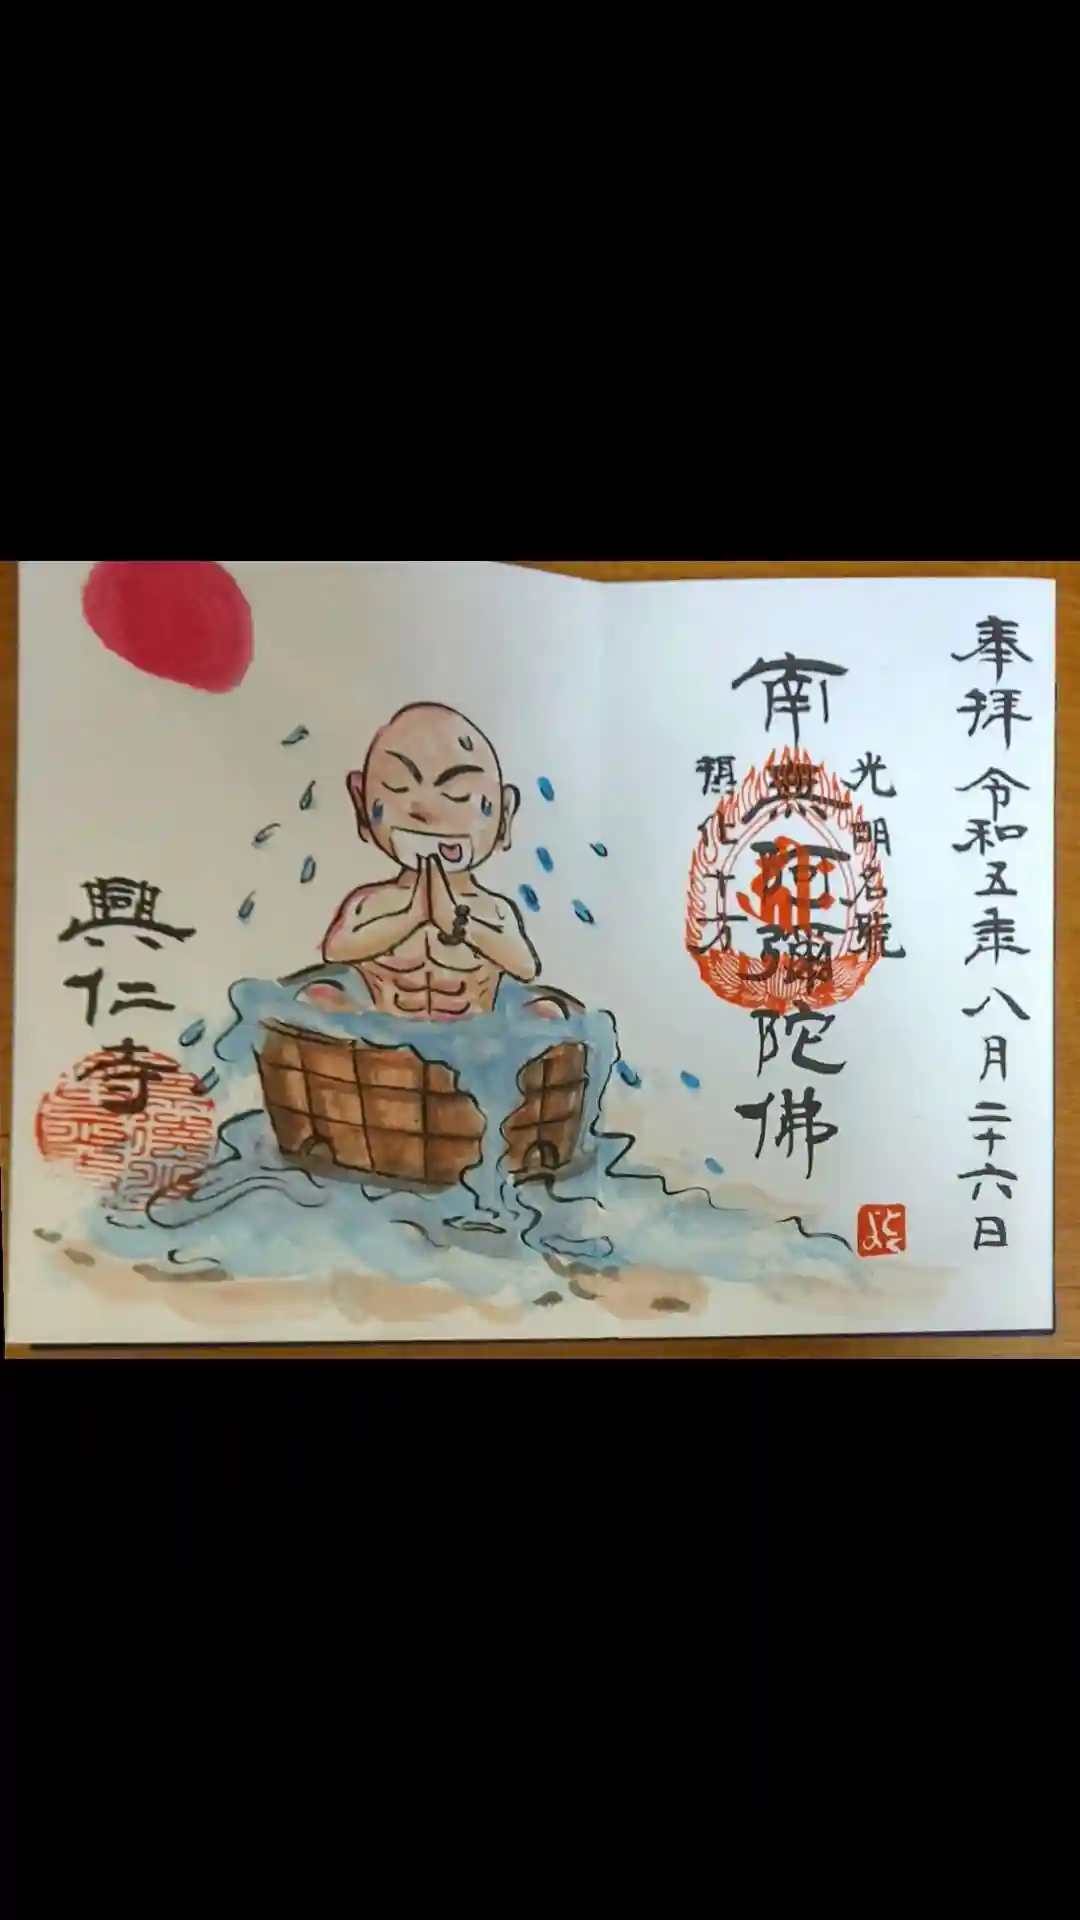 奉拝 令和五年八月二十六日
光明名號
南無阿彌陀佛
摂化十方
興仁寺